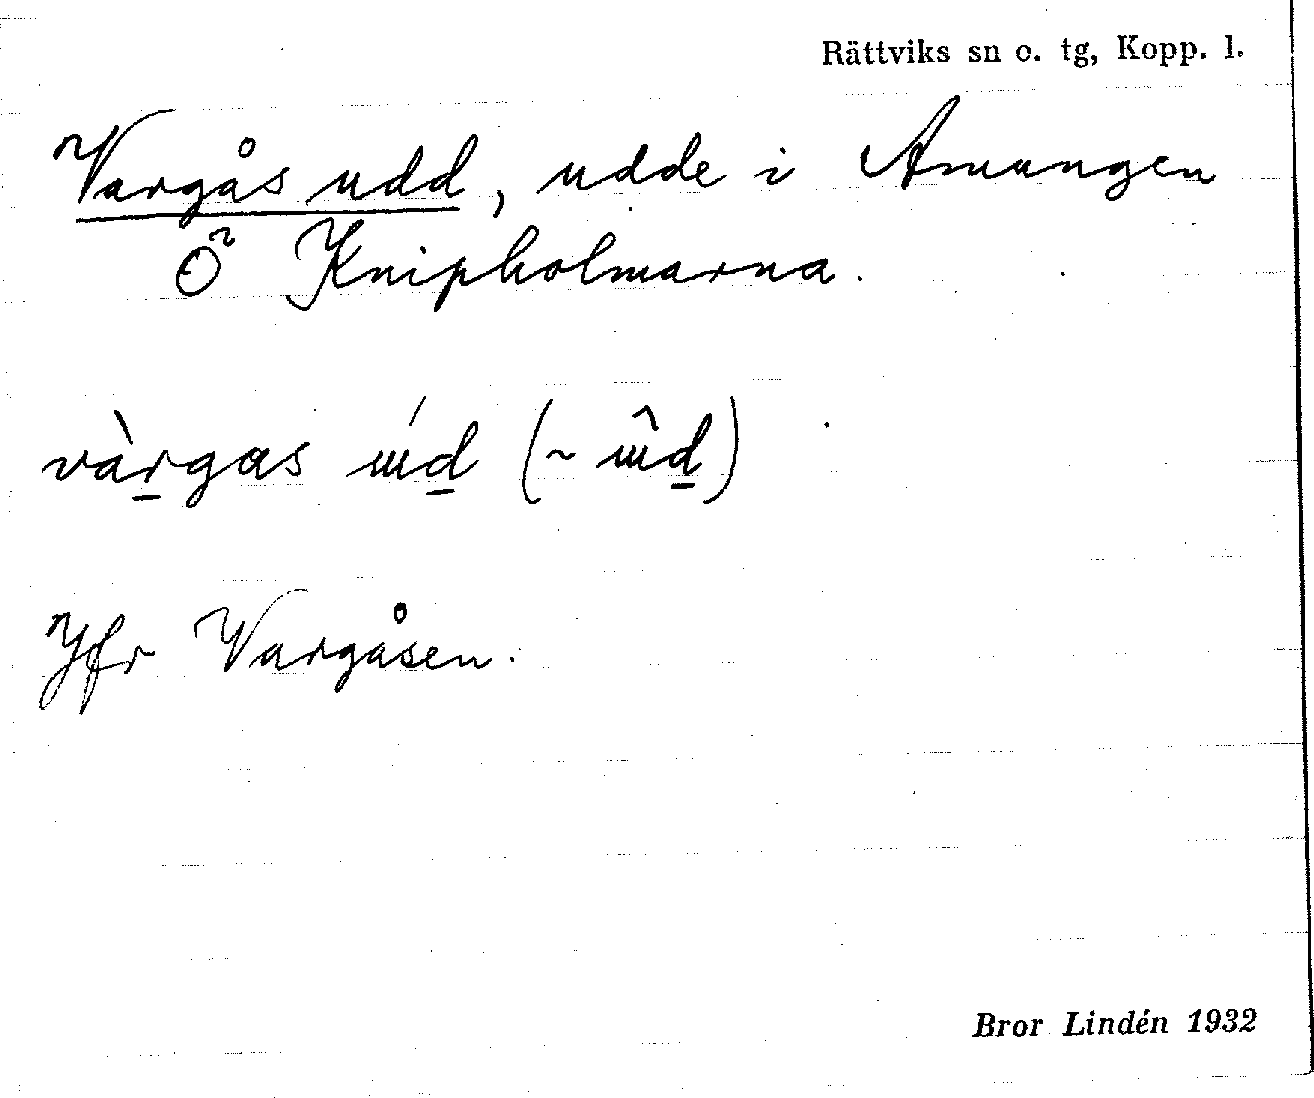 Rättviks sn o. tg, Kopp. l.
Vargås udd, udde i Amungen
Ö Knipholmarna.
vàrgas ɯ́d (~ ɯ̂d)
Jfr Vargåsen.
Bror Lindén 1932